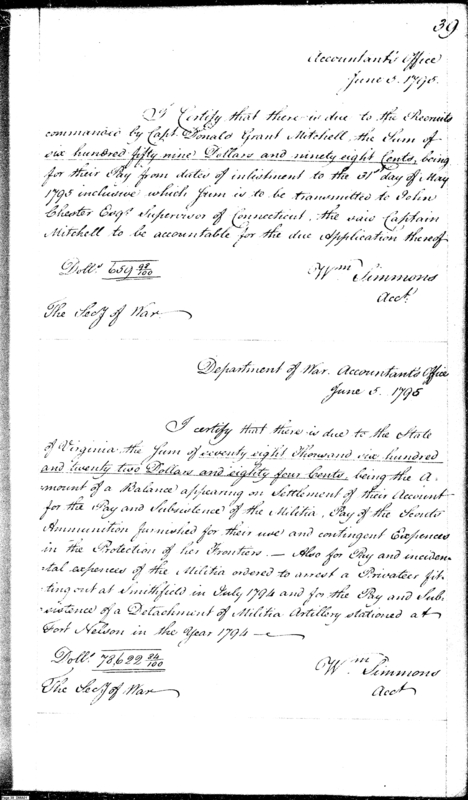 39
Accountant's Office
June 5. 1795.
I Certify that there is due to the Recruits
commanded by Capt. Donald Grant Mitchell, the Sum of
six hundred fifty nine Dollars and ninety eight Cents, being
for their Pay from dates of inlistment to the 31st day of May
1795 inclusive which sum is to be transmitted to John
Chester Esqr. Supervisor of Connecticut, the said Captain
Mitchell to be accountable for the due Application thereof
Dolls. 659 98/100
Wm Simmons
Acct.
The Secy of War
Department of War. Accountant's Office
June 5. 1795
I certify that there is due to the State
of Virginia the Sum of seventy eight Thousand six hundred
and twenty two Dollars and eighty four Cents, being the A-
mount of a Balance appearing on Settlement of their Account
for the Pay and Subsistence of the Militia, Pay of the Scouts
Ammunition furnished for their use and contingent Expences
in the Protection of her Frontiers. — Also for Pay and inciden-
tal expences of the Militia ordered to arrest a Privateer fit-
ting out at Smithfield in July 1794 and for the Pay and Sub-
sistence of a Detachment of Militia Artillery stationed at
Fort Nelson in the Year 1794 —
Dolls. 78,622 84/100
Wm Simmons
Acct
The Secy of War